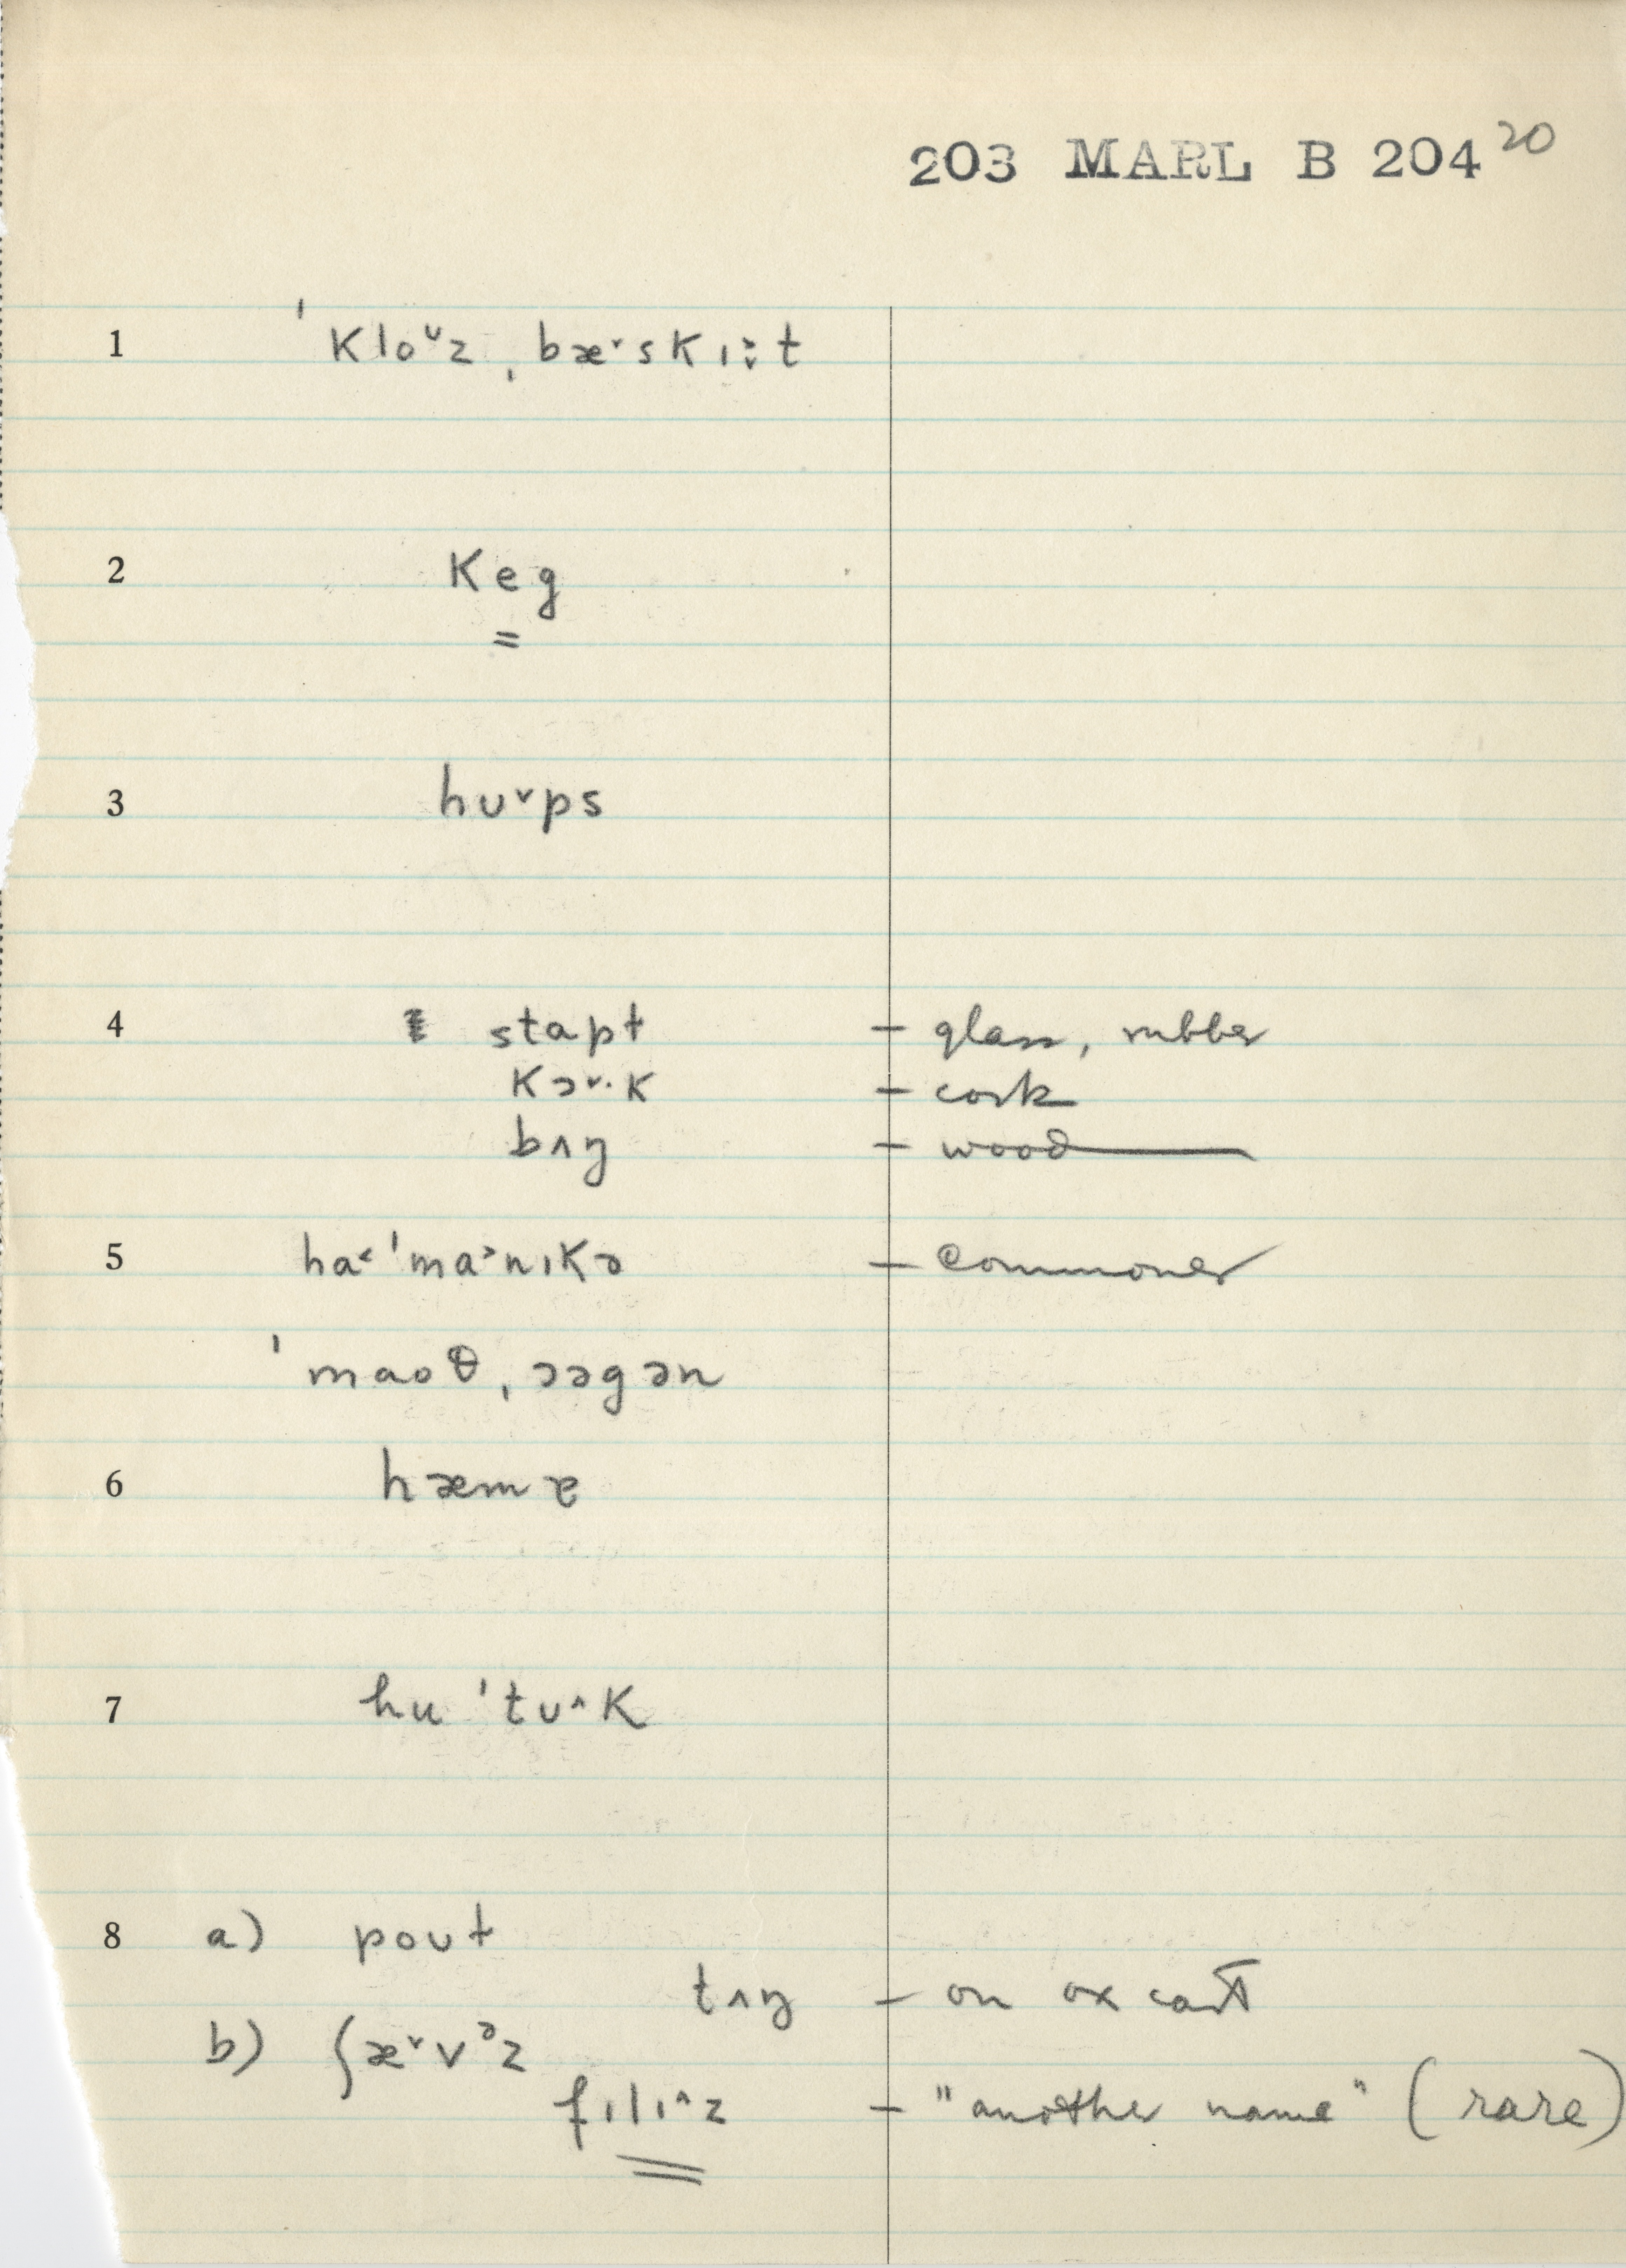 203 MARL B 204 20
1 ˈkloᵛz ˌbæ˅skɪ:t
2 keg
3 hʊ˅ps
4 stɑpt – glass, rubber
kɔ˅·k – cork
bʌŋ – wood
5 ha˂ˈma˃nɪkə – commoner
ˈmaoθˌɔəgən
6 hæmɐ
7 huˈtʊ˄k
8 a) poʊt
tʌŋ – on ox cart
b) ʃæ˅vᵊz
fɪlɪ˄z – "another name" (rare)